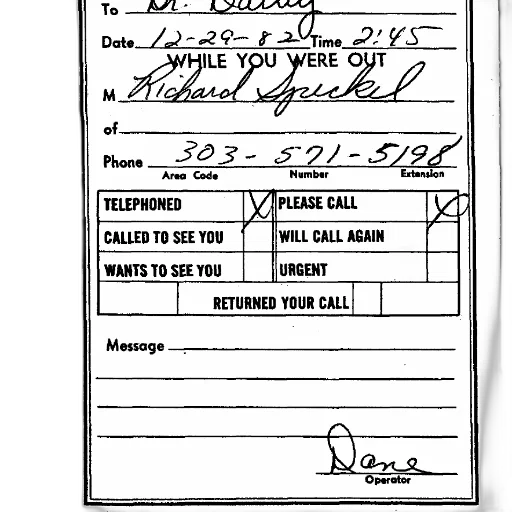 To Dr.
Date 12-29-82 Time 2:45
WHILE YOU WERE OUT
M Richard Speckel
of
Phone 303-571-5198
Area Code Number Extension
TELEPHONED X PLEASE CALL X
CALLED TO SEE YOU WILL CALL AGAIN
WANTS TO SEE YOU URGENT
RETURNED YOUR CALL
Message
Dane
Operator